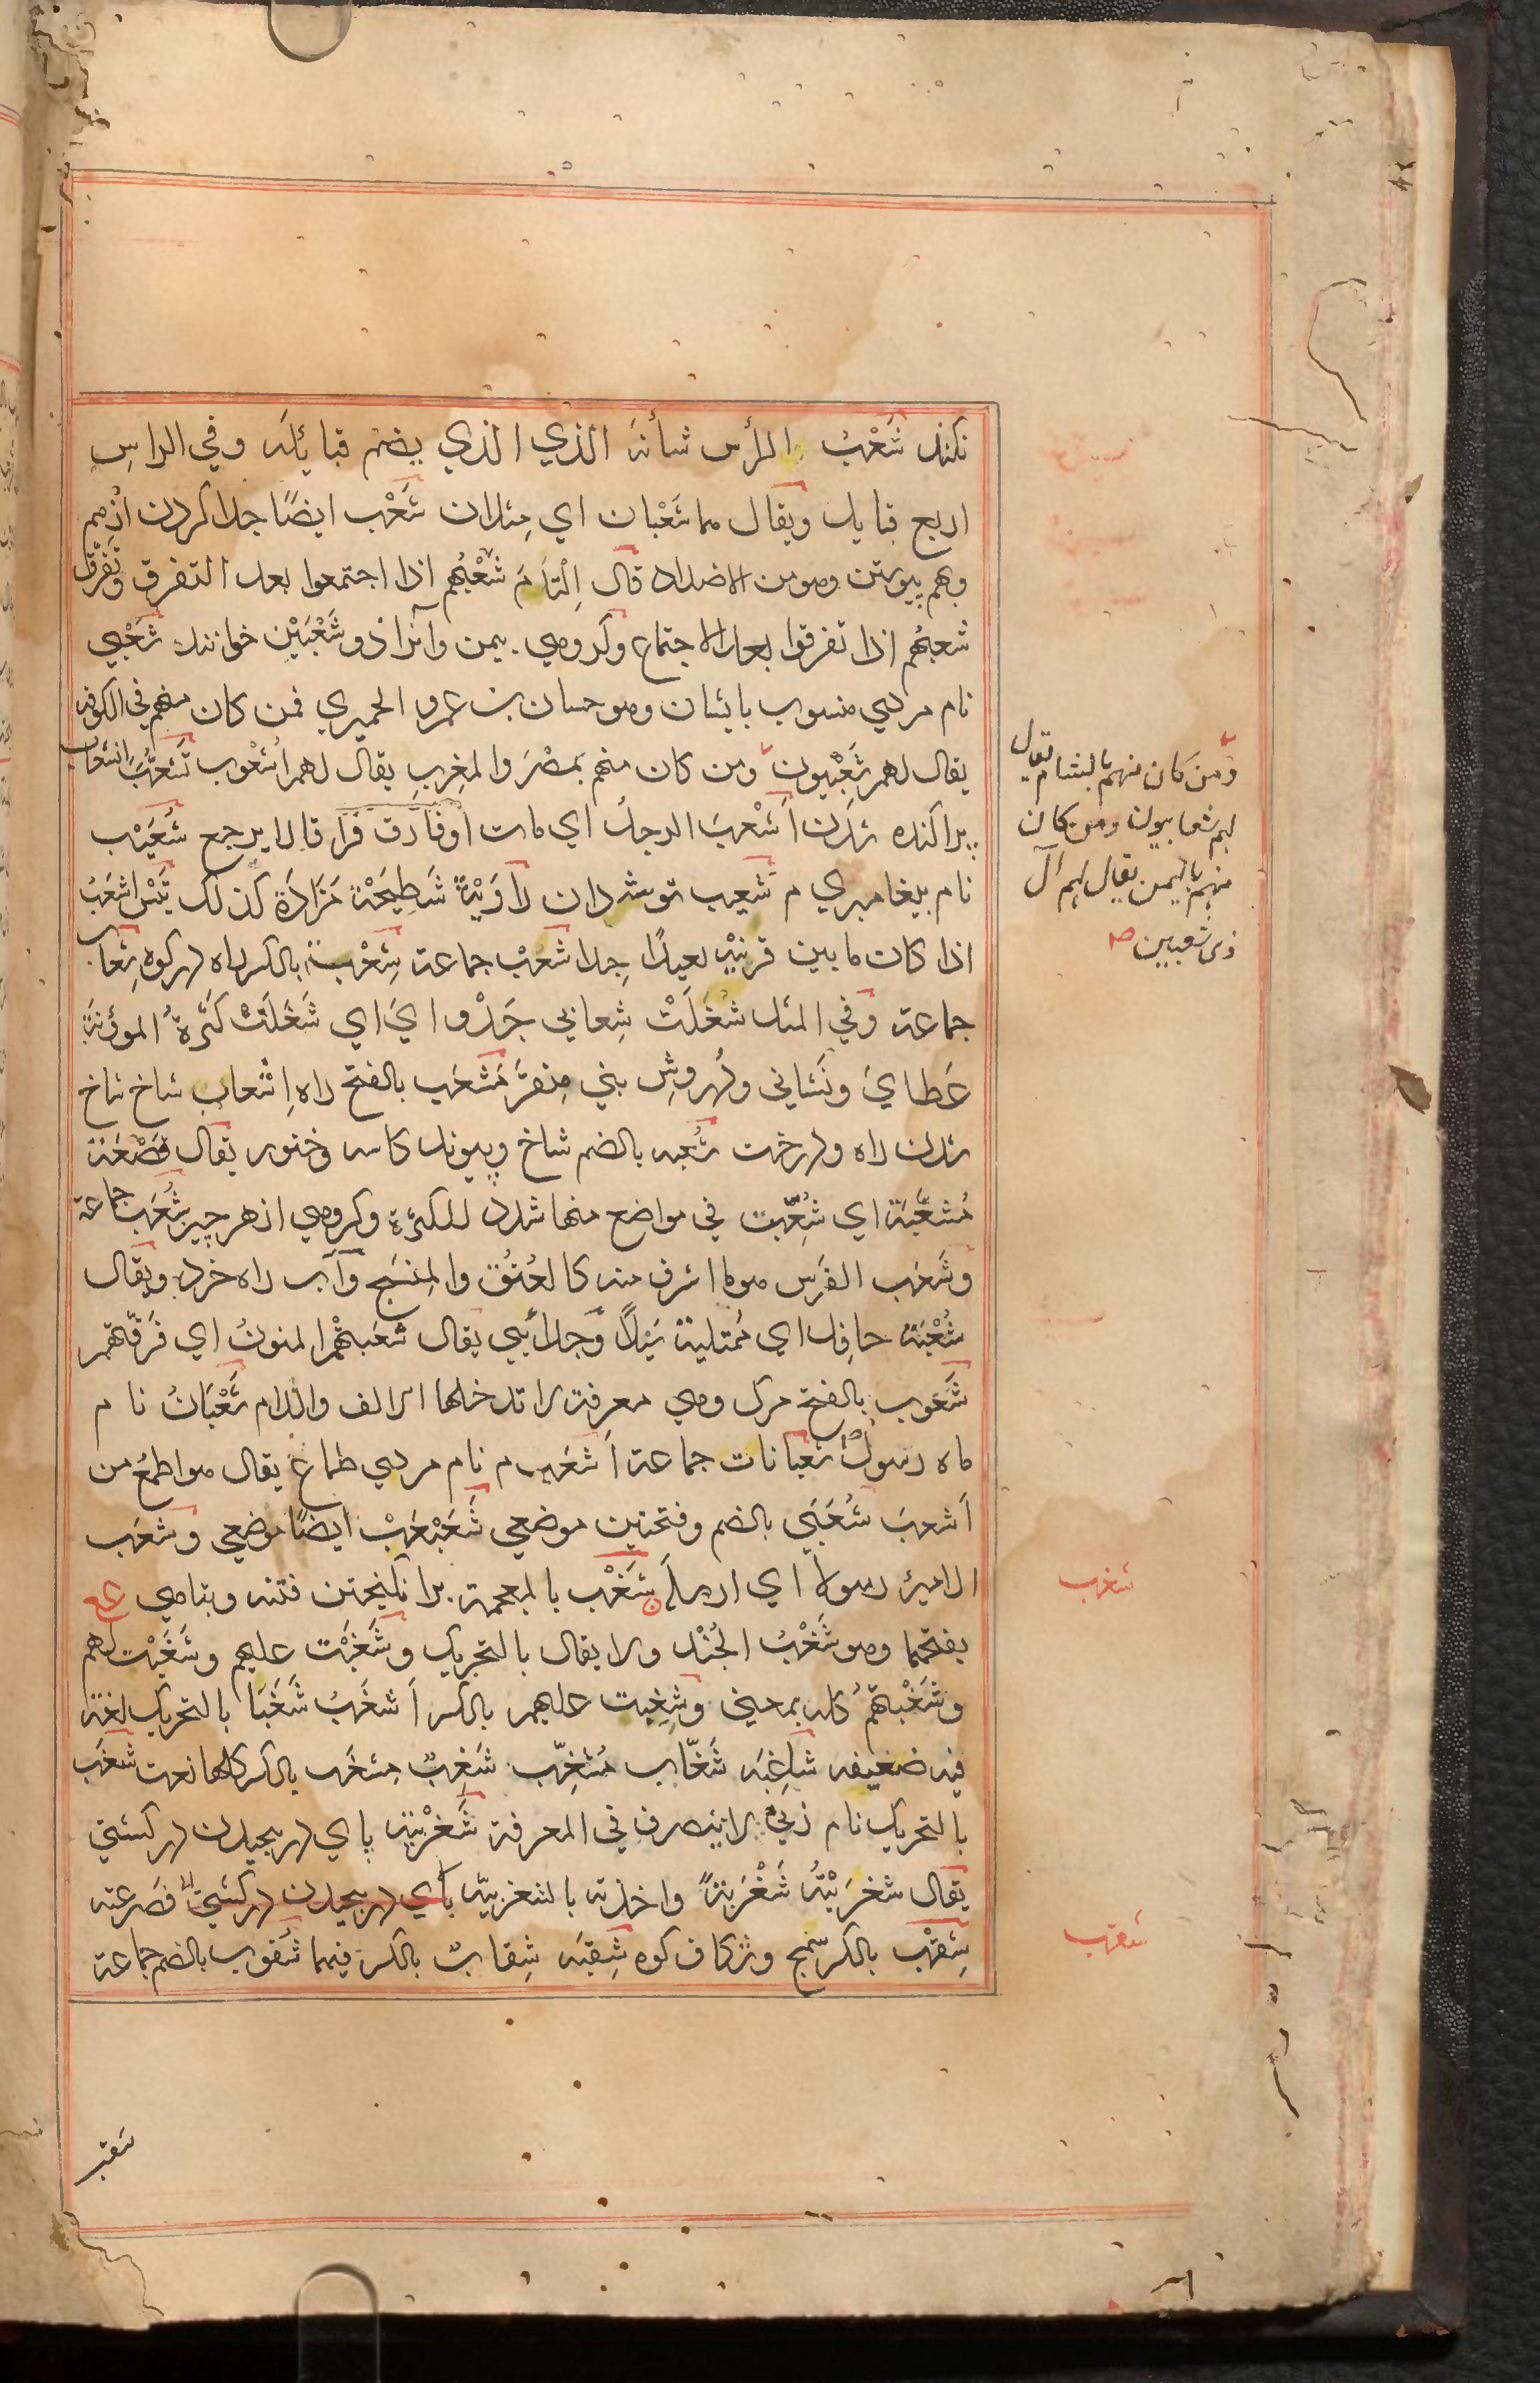 نکند شَعْبُ الرأس شأنه الذي الذي يضم قبايله وفي الراسِ
اربع قبايل ويقال هما شَعْبان اي مِثلان شَعْب ايضًا جدا کردن ازهم
وبهم پیوستن وهو من الاضداد قال اِلْتَأمَ شَعْبُهم اذا اجتمعوا بعد التفرق وتَفرَّقَ
شعبُهم اذا تفرقوا بعد الاجتماع وکروهی بیمن وآنرا ذو شَعْبَيْن خوانند شَعْبي
نام مردی منسوب بایشان وهو حسان بن عمرو الحميري فمن كان منهم في الكوفه
يقال لهم شَعْبيون ومن كان منهم بمصْرَ والمغربِ يقال لهم اُشْعُوب تَشَعُّبَ انشعاب
پراکنده شدن اَشْعبَ الرجلُ اي مات او فارق فراقا لا يرجع شُعَيْب
نام پیغامبری م شَعِيب توشه دان راوَيْةً شَطِيحَة مَزَادَة كذلك تَيْسٌ اشعَبُ
اذا كان ما بين قرنيْه بعيدًا جدا شُعْبٌ جماعة شِعْب بالكسر راه در کوه شِعاب
جماعة وفي المثل شَغَلَتْ شِعابي جَدْوايَ اي شَغَلَتْ كَثْرةُ المؤنة
عَطايَ ونشانی و دروشِ بني مِنقرَ مَشعَب بالفتح راه اِنشعاب شاخ شاخ
شدن راه ودرخت شُعبه بالضم شاخ وپیوند کاسه وخنور يقال قَصْعَة
مُشعَّبَة اي شُعِّبت في مواضع منها شدد للكثرة وکروهی از هر چیز شُعَب جماعة
وشُعَب الفَرَس هو ما اشرف منه كالعُنُق والمِنسَج وآب راه خرد ويقال
شُعْبَة حافِل اي مُمتلية سَيْلاً وجدایی يقال شَعَبتْهُم المنونُ اي فَرَّقتهم
شَعُوب بالفتح مرك وهي معرفة لا تدخلها الالف واللام شَعْبَانُ نام
ماه رسول شعبانات جماعة اَشعَب م نام مردی طماع يقال هو اطمع من
اَشعبَ شُعَبَى بالضم وفتحتين موضعی شَعَبْعَبْ ايضًا موضعی وشَعَب
الاميرُ رسولا اي ارسله شَغْب بالمعجمة برانکیختن فتنه وتباهی
بفتحهما وهو شَغْبُ الجُنْد ولا يقال بالتحريك وشَغَبْت عليهم وشَغَبْت لهم
وشَغَبْتهُم كله بمعنى وشَغِبت عليهم بالكسر اَشغَبُ شَغَبَا بالتحريك لغة
فيه ضعيفه شاغِبَه شَغّاب مُشغِّب شَغِبٌ مِشغَب بالكسر كلها نعت شَغَب
بالتحريك نام زنی لا ينصرف في المعرفة شَغْزبيّة پای در پیچیدن در کشتی
يقال شغزَبْتُه شَغْزَبَةً واخذته بالشغزبيّه پای در پیچیدن در کشتی فصرعته
شِقْب بالكسر سُمج وشکاف کوه شِقبَه شِقابٌ بالكسر فيهما شُقوب بالضم جماعة
ومَن كان منهم بالشام يقال
لهم شعابيون ومن كان
منهم باليمن يقال لهم آل
ذی شعبين صح
شغب
شقب
شقبـ